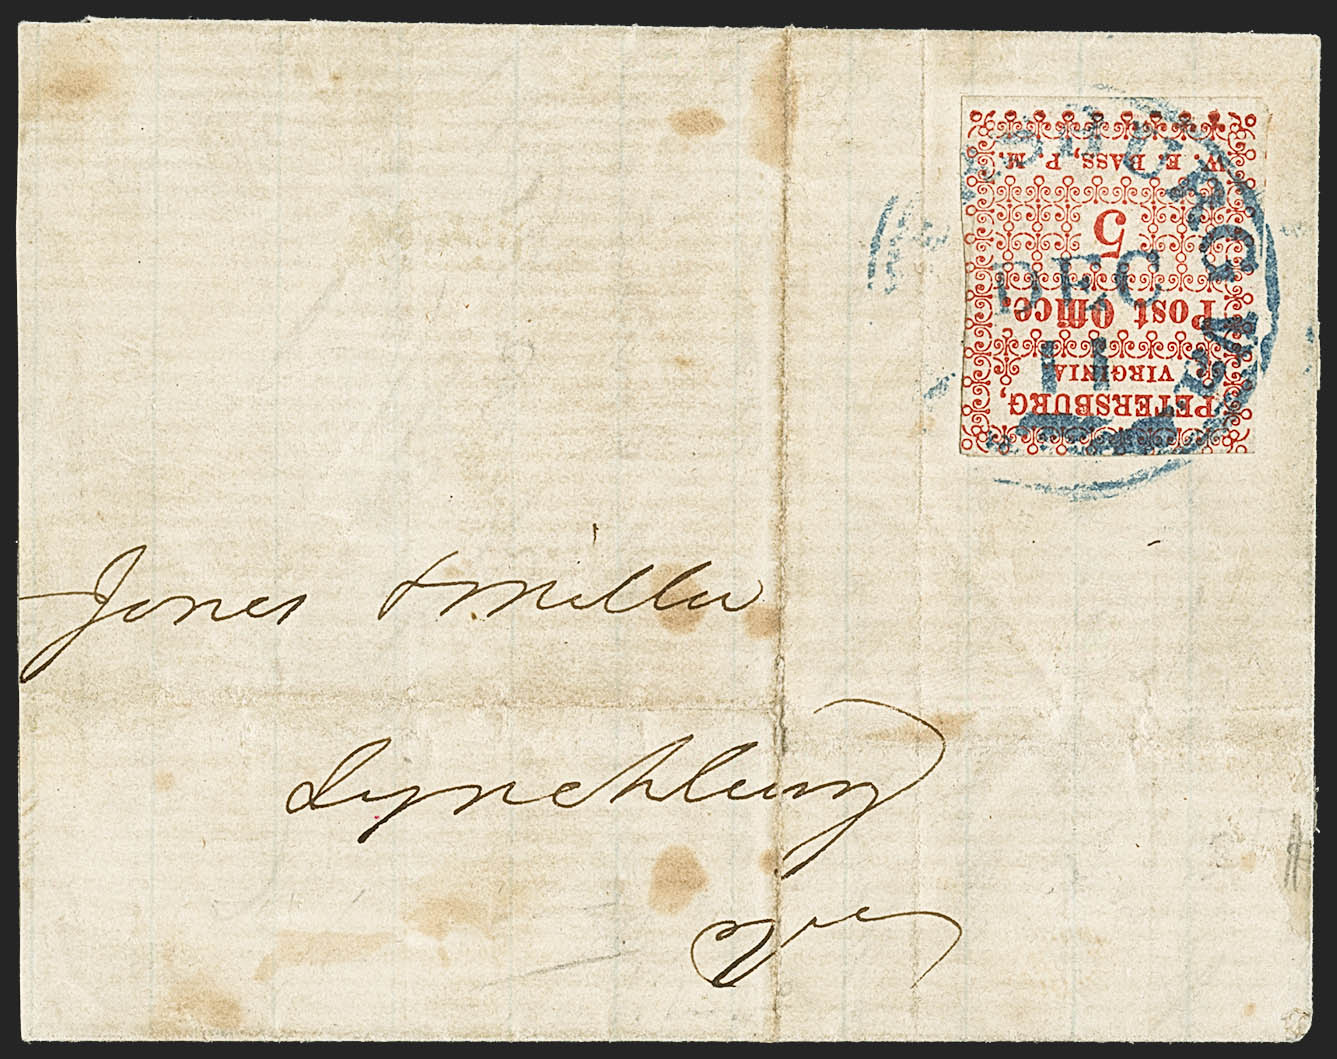 W. E. BASS, P. M.
5
Post Office.
VIRGINIA
PETERSBURG,
SBURG Va.
DEC
11
Jones & Miller
Lynchburg
Va